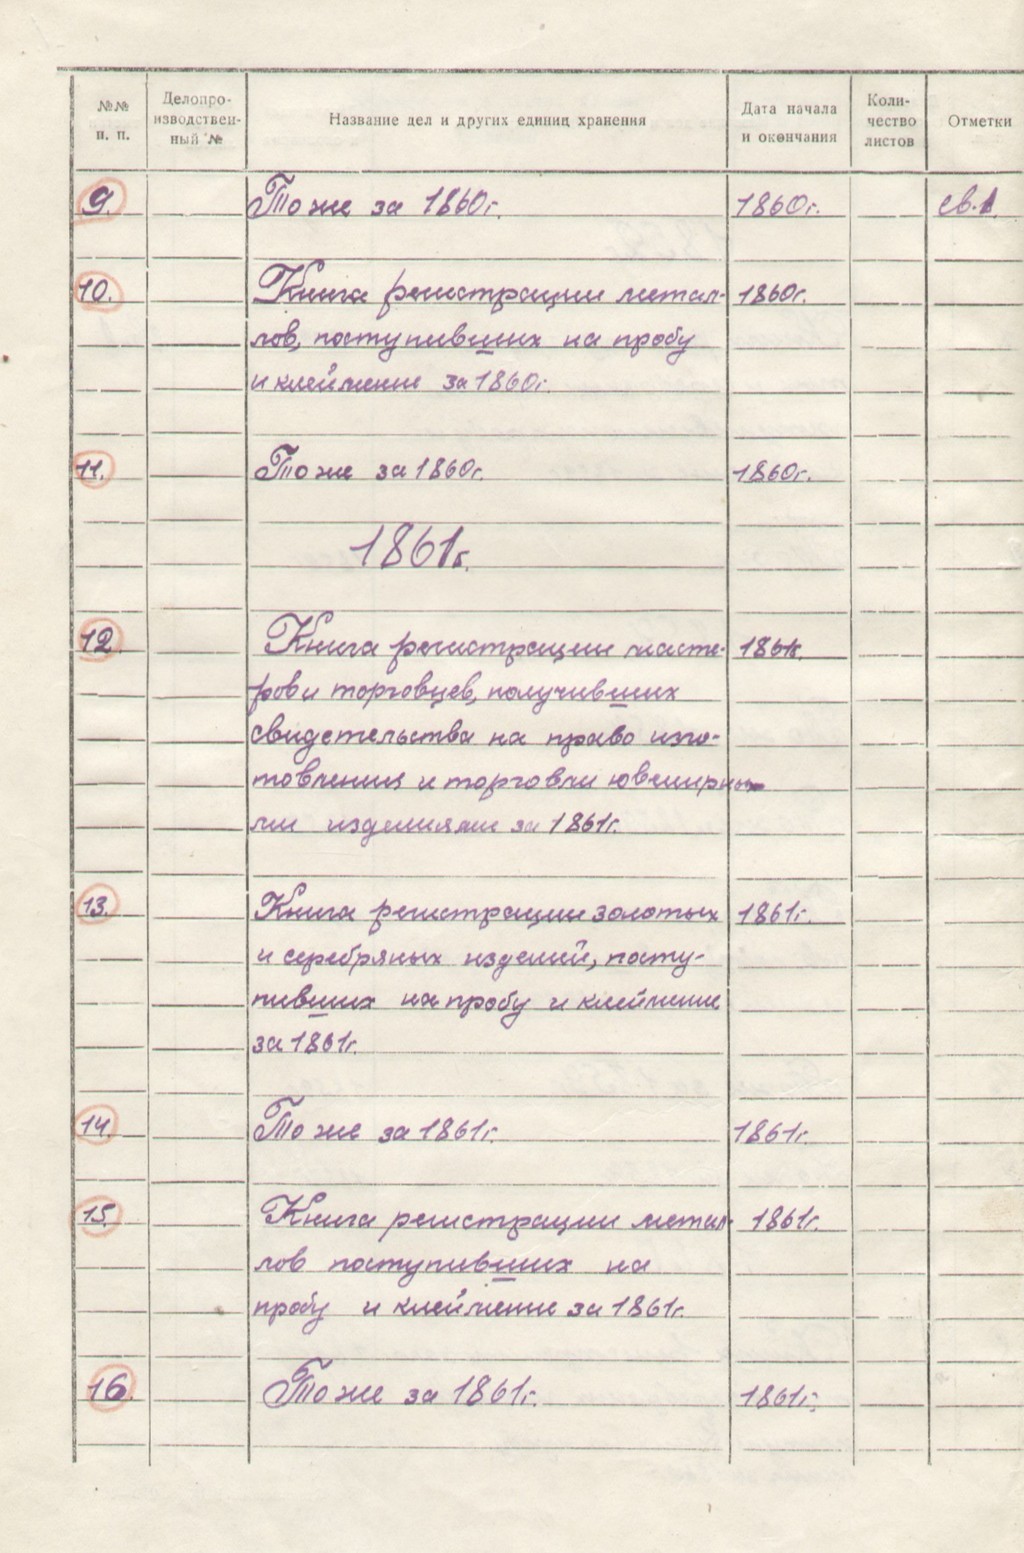 №№ п. п.
Делопро-
изводствен-
ный №
Название дел и других единиц хранения
Дата начала
и окончания
Коли-
чество
листов
Отметки
9. То же за 1860г. 1860г. св.1.
10. Книга регистрации метал- 1860г.
лов, поступивших на пробу
и клеймение за 1860г.
11. То же за 1860г. 1860г.
1861г.
12 Книга регистрации масте- 1861г.
ров и торговцев, получивших
свидетельства на право изго-
товления и торговли ювелирны-
ми изделиями за 1861г.
13. Книга регистрации золотых 1861г.
и серебряных изделий, посту-
пивших на пробу и клеймение
за 1861г.
14. То же за 1861г. 1861г.
15. Книга регистрации метал- 1861г.
лов поступивших на
пробу и клеймение за 1861г.
16. То же за 1861г. 1861г.